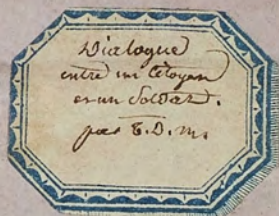 Dialogue
entre un Citoyen
et un Soldat.
par T. D. m.